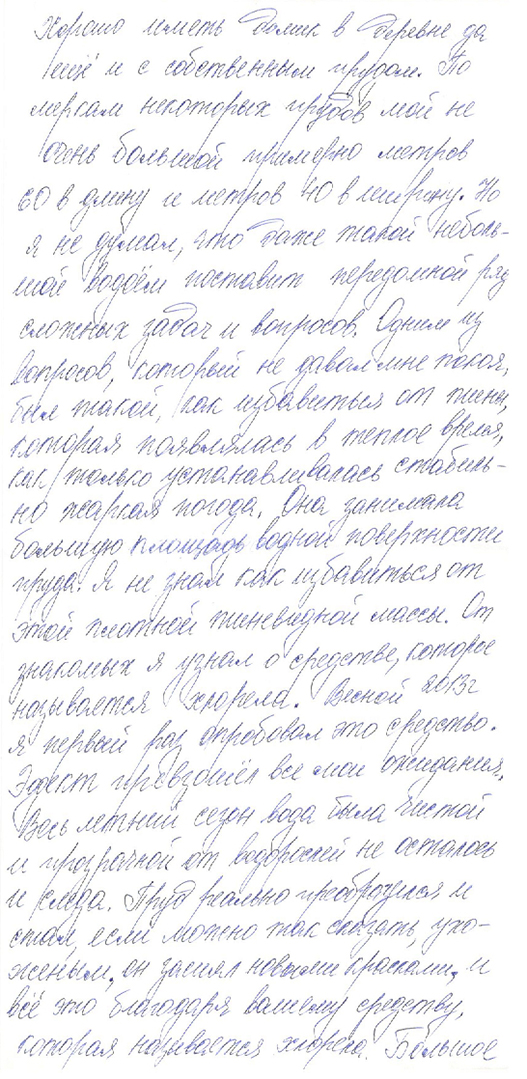 Хорошо иметь домик в деревне да
ещё и с собственным прудом. По
меркам некоторых прудов мой не
очень большой примерно метров
60 в длину и метров 40 в ширину. Но
я не думал, что даже такой неболь-
шой водоём поставит передомной ряд
сложных задач и вопросов. Одним из
вопросов, который не давал мне покоя,
был такой, как избавиться от тины,
которая появлялась в теплое время,
как только устанавливалась стабиль-
но жаркая погода. Она занимала
большую площадь водной поверхности
пруда. Я не знал как избавиться от
этой плотной тиневидной массы. От
знакомых я узнал о средстве, которое
называется хлорела. Весной 2013г
я первый раз опробовал это средство.
Эфект превзошёл все мои ожидания.
Весь летний сезон вода была чистой
и прозрачной от водорослей не осталось
и следа. Пруд реально преобразился и
стал, если можно так сказать, ухо-
женым, он засиял новыми красками, и
всё это благодаря вашему средству,
которая называется хлорела. Большое